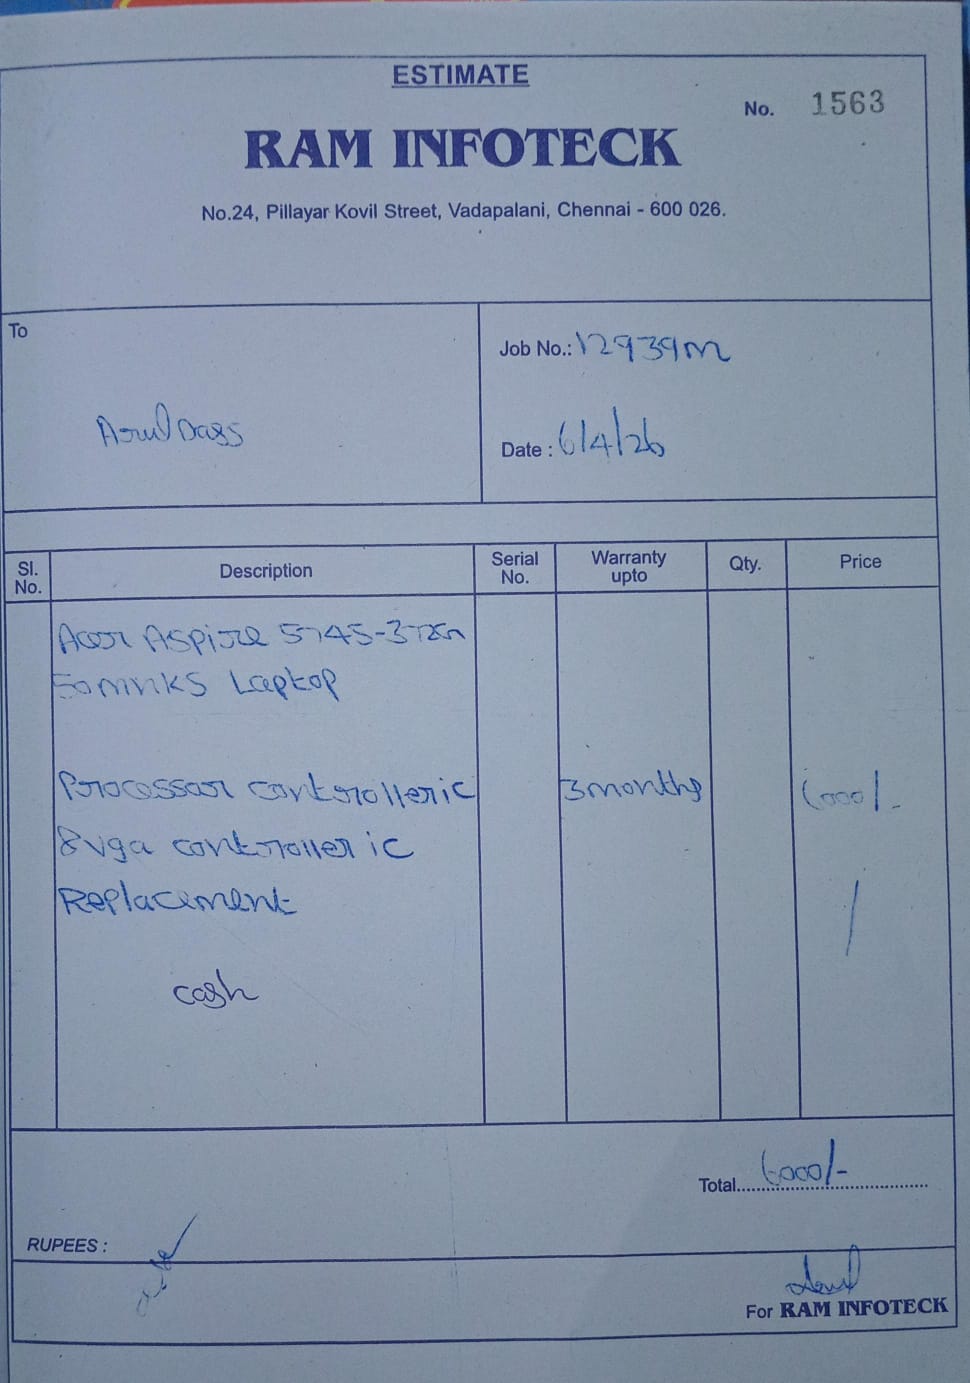 ESTIMATE
No. 1563
RAM INFOTECK
No.24, Pillayar Kovil Street, Vadapalani, Chennai - 600 026.
To
Job No.: 12939m
Arul Dass
Date : 6/4/26
Sl. No. Description Serial No. Warranty upto Qty. Price
Acer Aspire 5745-372G
50mnks Laptop
Processor controller ic 3 months 6000/-
& vga controller ic
Replacement
cash
Total 6000/-
RUPEES :
For RAM INFOTECK